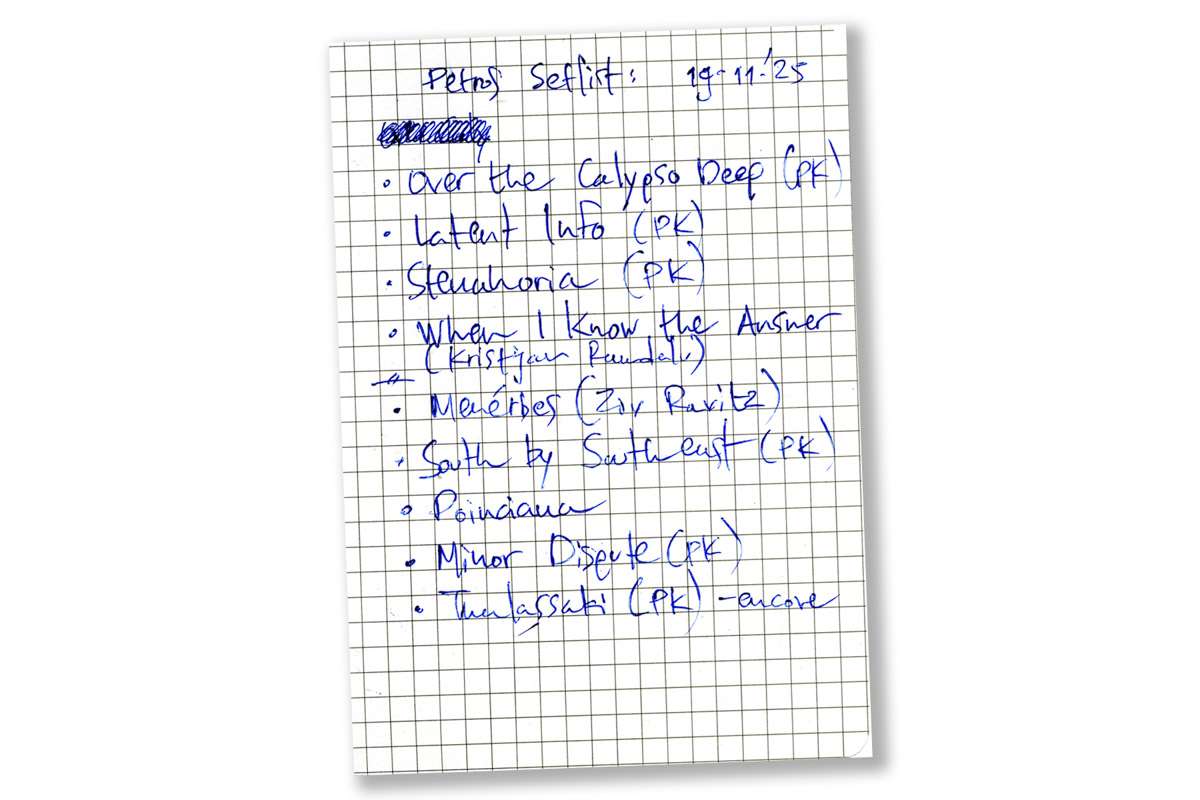 Petros Setlist: 19-11-'25
• Over the Calypso Deep (PK)
• Latent Info (PK)
• Stenahoria (PK)
• When I Know the Answer
(Kristjan Randalu)
• Menérbes (Ziv Ravitz)
• South by Southeast (PK)
• Poinciana
• Minor Dispute (PK)
• Thalassaki (PK) - encore